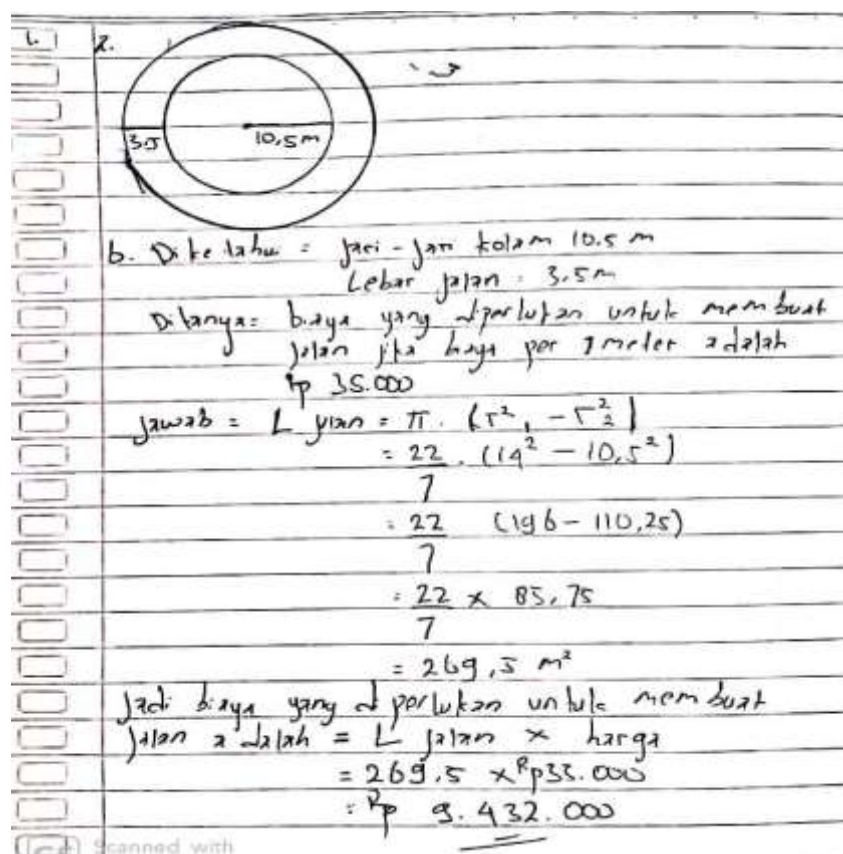 1. 2.
3.5 10,5 m
b. Diketahui = jari-jari kolam 10.5 m
Lebar jalan = 3.5 m
Ditanya = biaya yang diperlukan untuk membuat
jalan jika biaya per 1 meter adalah
Rp 35.000
Jawab = L jalan = π . (r²₁ - r²₂)
= 22/7 . (14² - 10,5²)
= 22/7 (196 - 110,25)
= 22/7 x 85,75
= 269,5 m²
Jadi biaya yang diperlukan untuk membuat
jalan adalah = L jalan x harga
= 269.5 x Rp35.000
= Rp 9.432.000
Scanned with